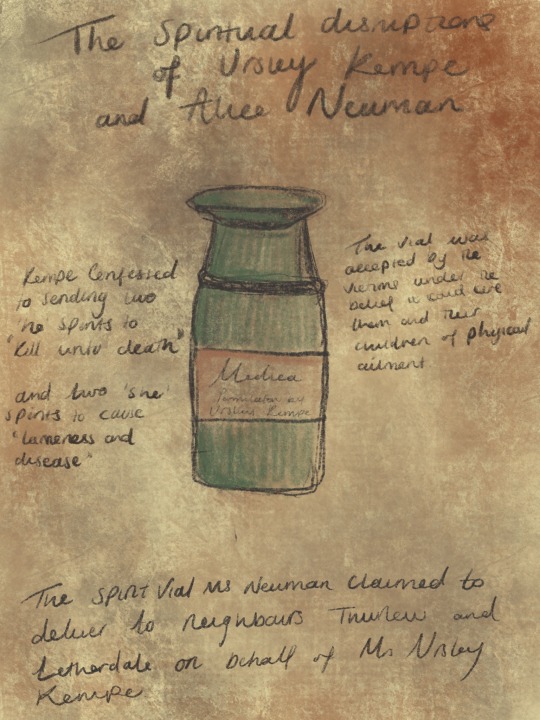 The Spiritual disruptions
of Ursley Kempe
and Alice Neuman
Kempe Confessed
to sending two
'he spirits to
"Kill unto death"
and two 'she'
spirits to cause
"lameness and
disease"
The vial was
accepted by the
victims under the
belief it could cure
them and their
children of physical
ailment
Medica
Ursley Kempe
The Spirit Vial Ms Neuman claimed to
deliver to neighbours Thurlow and
Letherdale on behalf of Ms Ursley
Kempe